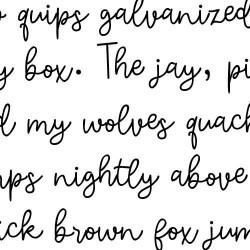 quips galvanized
y box. The jay, pi
d my wolves quack
mps nightly above
ick brown fox jum